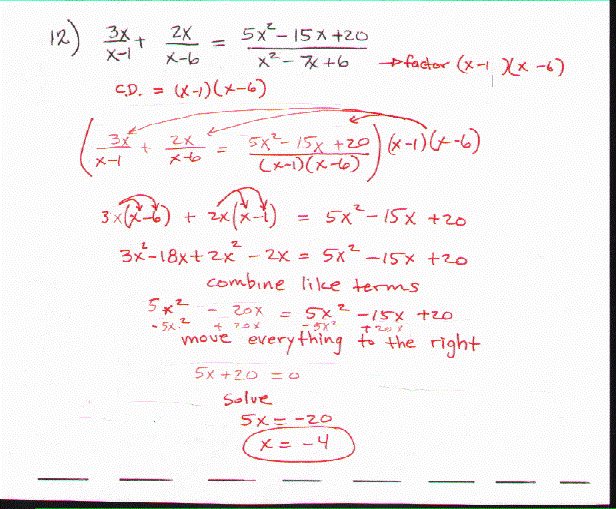 12) 3x/x-1 + 2x/x-6 = 5x²-15x+20/x²-7x+6 → factor (x-1)(x-6)
C.D. = (x-1)(x-6)
(3x/x-1 + 2x/x-6 = 5x²-15x+20/(x-1)(x-6)) (x-1)(x-6)
3x(x-6) + 2x(x-1) = 5x²-15x+20
3x²-18x+2x²-2x = 5x²-15x+20
combine like terms
5x² - 20x = 5x²-15x+20
-5x² +20x -5x² +20x
move everything to the right
5x+20=0
Solve
5x=-20
x=-4